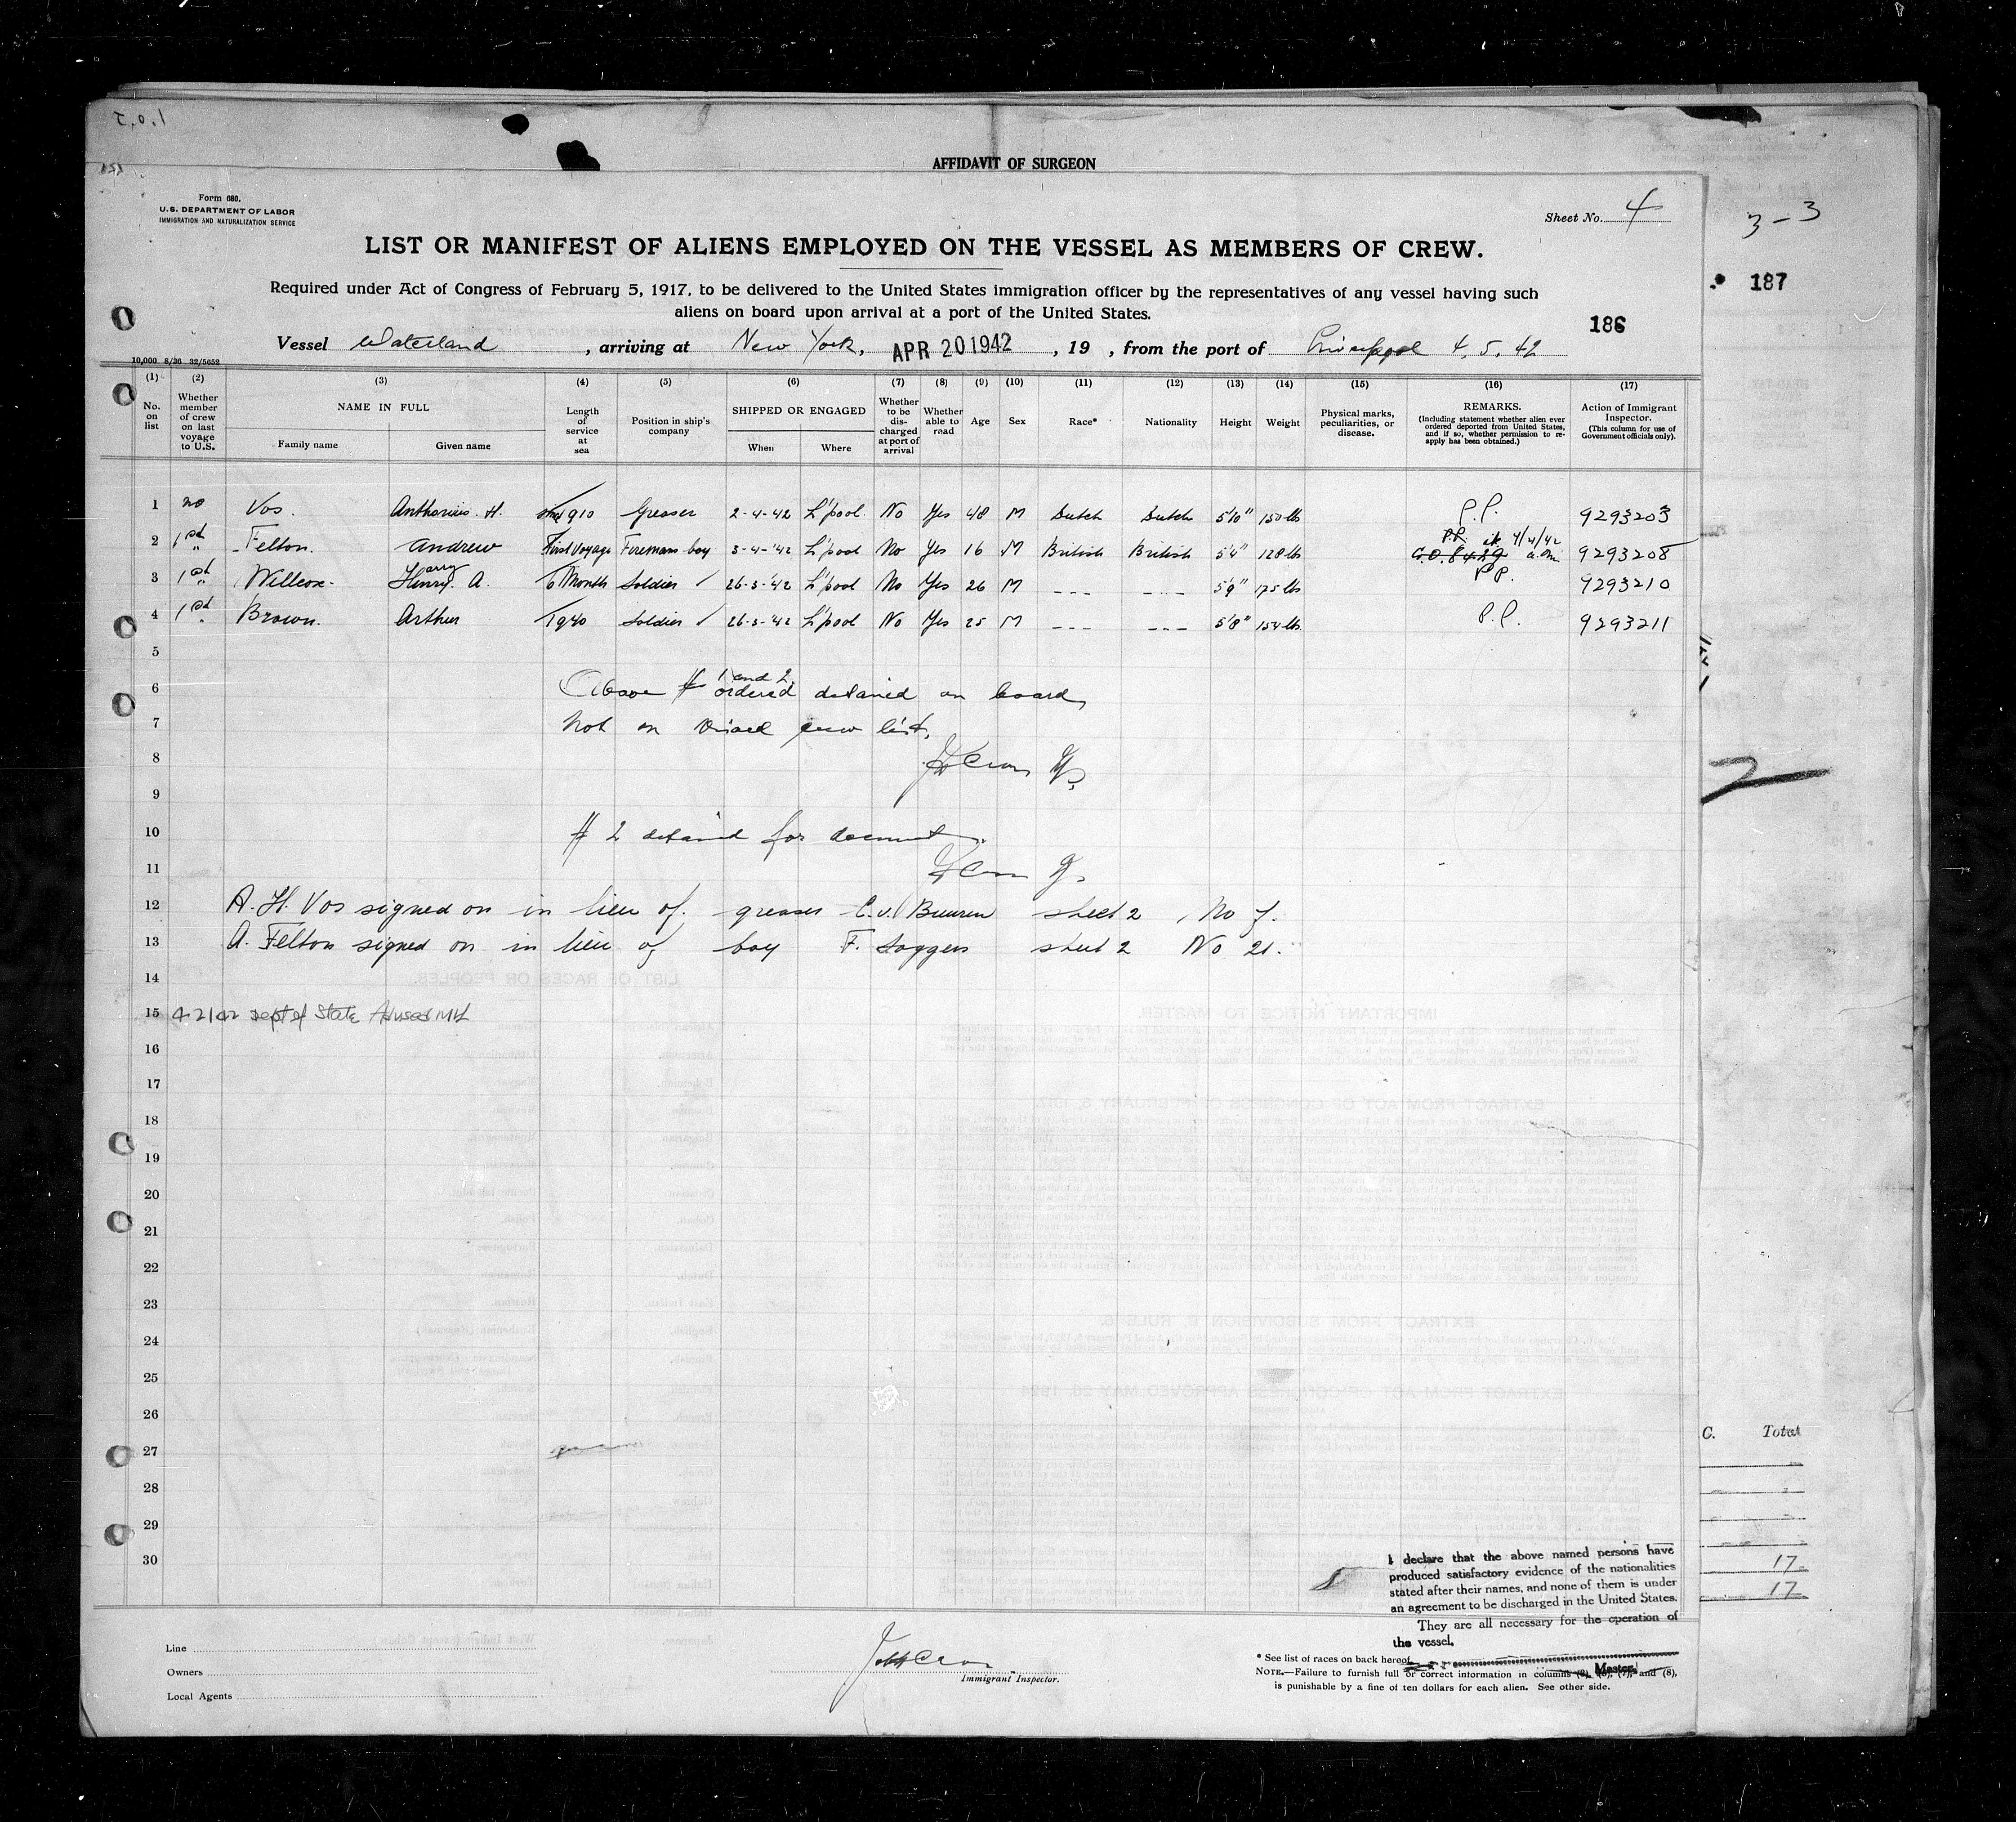 AFFIDAVIT OF SURGEON
Form 680.
U.S. DEPARTMENT OF LABOR
IMMIGRATION AND NATURALIZATION SERVICE
Sheet No. 4
3-3
LIST OR MANIFEST OF ALIENS EMPLOYED ON THE VESSEL AS MEMBERS OF CREW.
187
Required under Act of Congress of February 5, 1917, to be delivered to the United States immigration officer by the representatives of any vessel having such
aliens on board upon arrival at a port of the United States.
186
Vessel Waterland, arriving at New York, APR 20 1942, 19 , from the port of Liverpool 4.5.42
10,000 8/36 32/5652
(1) (2) (3) (4) (5) (6) (7) (8) (9) (10) (11) (12) (13) (14) (15) (16) (17)
No. on list
Whether member of crew on last voyage to U.S.
NAME IN FULL
Family name
Given name
Length of service at sea
Position in ship's company
SHIPPED OR ENGAGED
When
Where
Whether to be discharged at port of arrival
Whether able to read
Age
Sex
Race*
Nationality
Height
Weight
Physical marks, peculiarities, or disease.
REMARKS.
(Including statement whether alien ever ordered deported from United States, and if so, whether permission to reapply has been obtained.)
Action of Immigrant Inspector.
(This column for use of Government officials only).
1 no Vos. Anthonius. H. 1910 Greaser 2-4-42 L'pool. No Yes 48 M Dutch Dutch 5'10" 150 lbs P.P. 9293203
2 1st " Felton. Andrew First Voyage Firemans boy 3-4-'42 L'pool No Yes 16 M British British 5'4" 128 lbs P.P. 9293208
3 1st " Willcox. Henry. A. 6 Month Soldier 26-3-'42 L'pool No Yes 26 M --- --- 5'9" 175 lbs P.P. 9293210
4 1st " Brown. Arthur 1940 Soldier 26-3-'42 L'pool No Yes 25 M --- --- 5'8" 154 lbs. P.P. 9293211
5
6 Above # 1 and 2 ordered detained on board,
7 not on visaed crew list.
8
9
10 # 2 detained for document
11
12 A. H. Vos signed on in lieu of. greaser C. v. Buuren sheet 2, No 7.
13 A. Felton signed on in lieu of boy F. Soggers sheet 2 No 21.
14
15 4-21-42 Dept of State Advised
16
17
18
19
20
21
22
23
24
25
26
27
28
29
30
2
C. Total
17
17
I declare that the above named persons have
produced satisfactory evidence of the nationalities
stated after their names, and none of them is under
an agreement to be discharged in the United States.
They are all necessary for the operation of
the vessel.
Master
Line
Owners
Local Agents
Immigrant Inspector.
* See list of races on back hereof.
NOTE.—Failure to furnish full or correct information in columns (2), (6), (7), and (8),
is punishable by a fine of ten dollars for each alien. See other side.